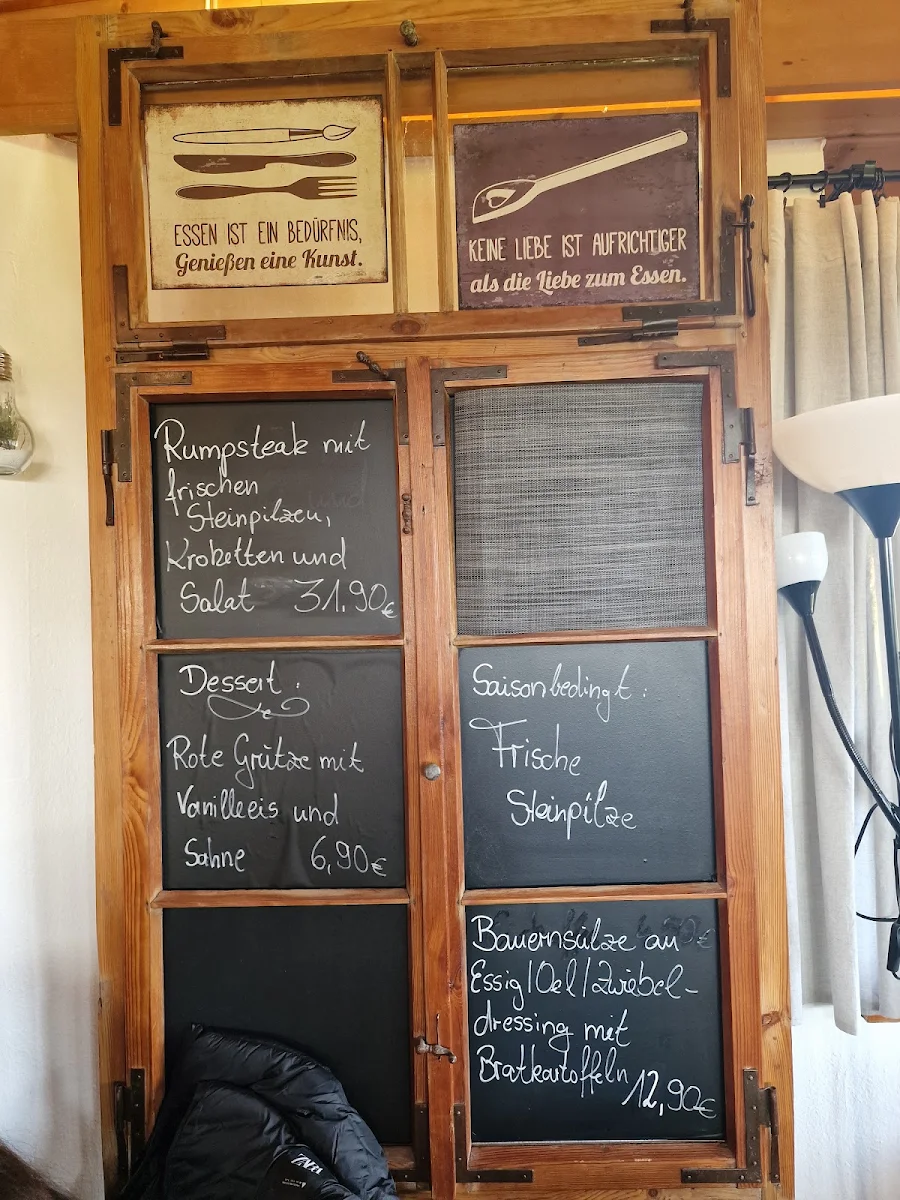 ESSEN IST EIN BEDÜRFNIS,
Genießen eine Kunst.
KEINE LIEBE IST AUFRICHTIGER
als die Liebe zum Essen.
Rumpsteak mit
frischen
Steinpilzen,
Kroketten und
Salat 31,90€
Dessert:
Rote Grütze mit
Vanilleeis und
Sahne 6,90€
Saisonbedingt:
Frische
Steinpilze
Bauernsülze an
Essig/Oel/Zwiebel-
dressing mit
Bratkartoffeln
12,90€
ZARA